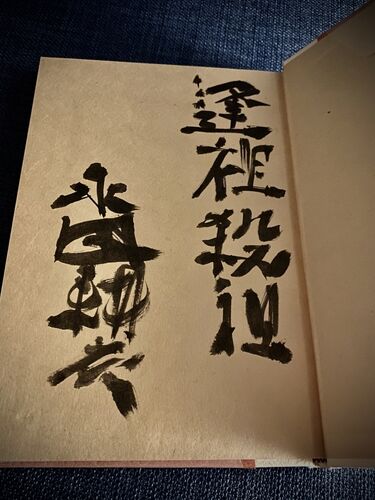 逢祖殺祖
永田耕衣